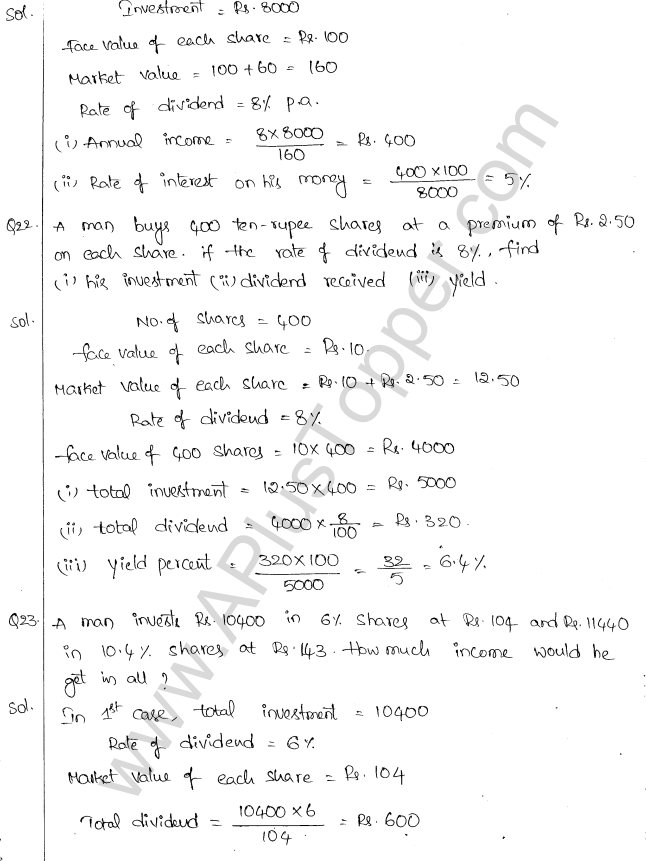 Sol. Investment = Rs. 8000
Face value of each share = Rs. 100
Market value = 100 + 60 = 160
Rate of dividend = 8% p.a.
(i) Annual income = 8 × 8000 / 160 = Rs. 400
(ii) Rate of interest on his money = 400 × 100 / 8000 = 5%
Q22. A man buys 400 ten-rupee shares at a premium of Rs. 2.50
on each share. if the rate of dividend is 8%, find
(i) his investment (ii) dividend received (iii) yield.
Sol. No. of shares = 400
face value of each share = Rs. 10.
Market value of each share = Rs. 10 + Rs. 2.50 = 12.50
Rate of dividend = 8%
face value of 400 shares = 10 × 400 = Rs. 4000
(i) total investment = 12.50 × 400 = Rs. 5000
(ii) total dividend = 4000 × 8/100 = Rs. 320.
(iii) yield percent = 320 × 100 / 5000 = 32/5 = 6.4%
Q23. A man invests Rs. 10400 in 6% shares at Rs. 104 and Rs. 11440
in 10.4% shares at Rs. 143. How much income would he
get in all?
Sol. In 1st case, total investment = 10400
Rate of dividend = 6%
Market value of each share = Rs. 104
Total dividend = 10400 × 6 / 104 = Rs. 600
www.APlusTopper.com